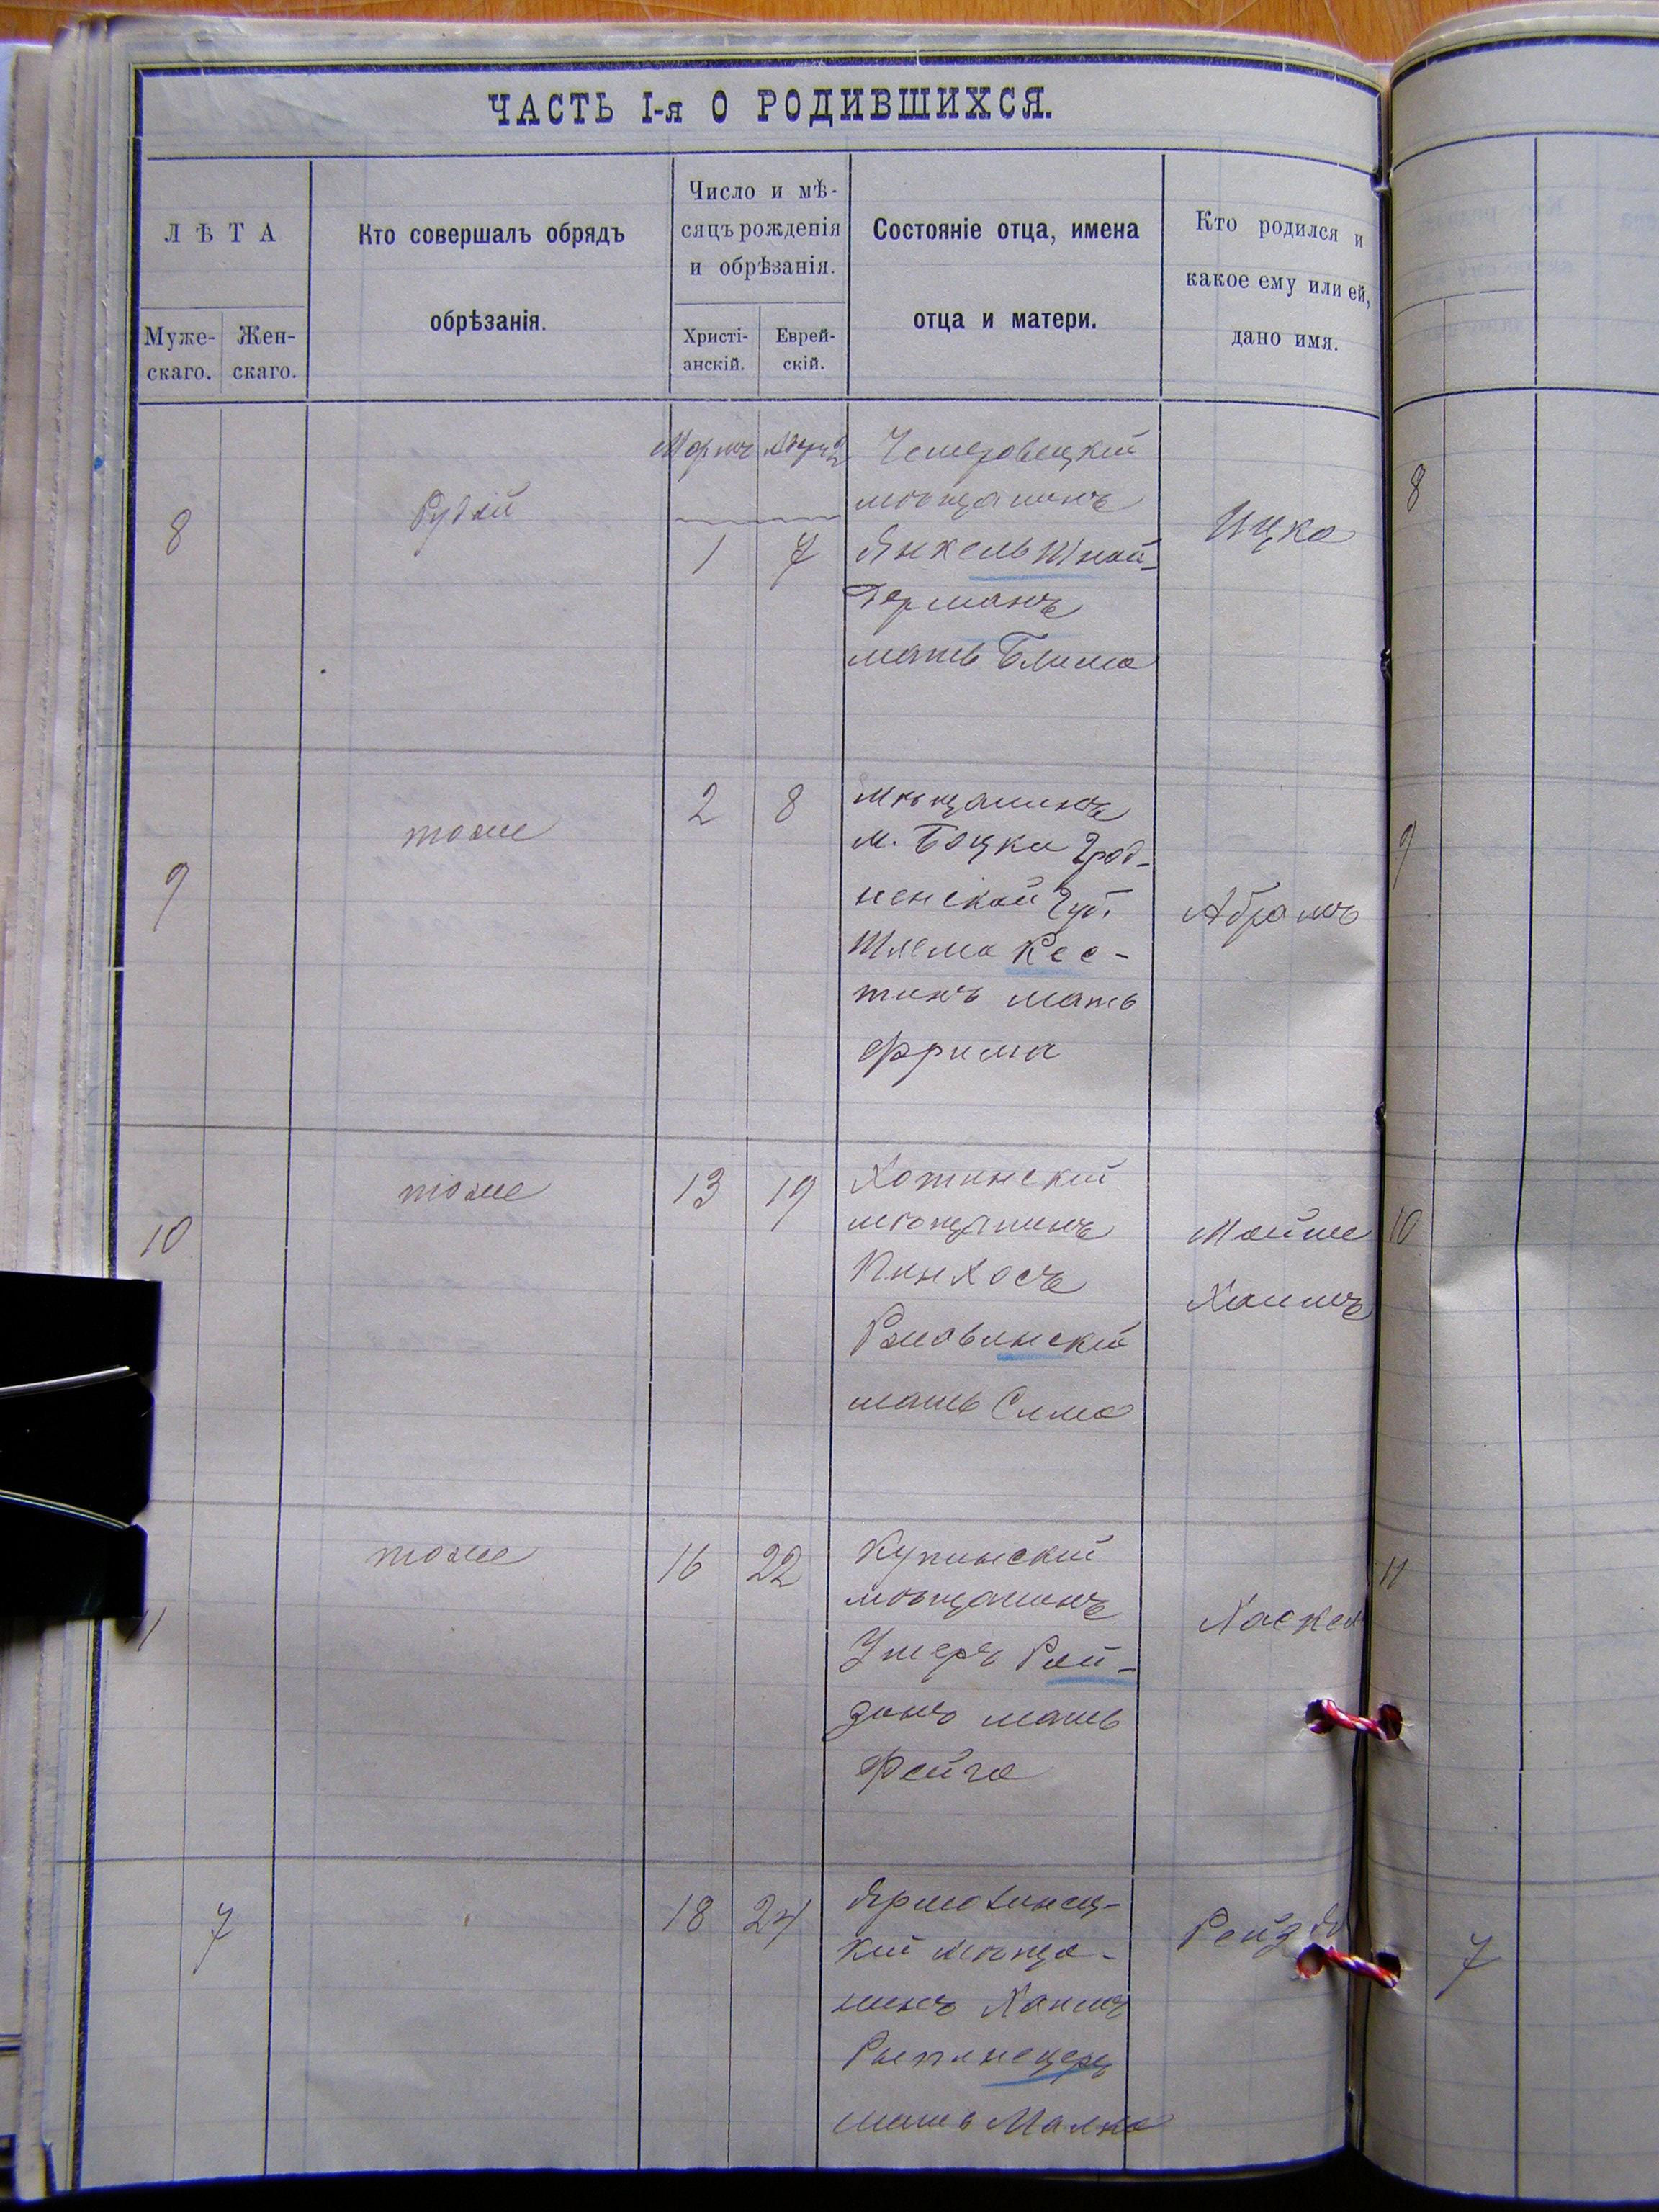 ЧАСТЬ I-я О РОДИВШИХСЯ.
ЛѢТА
Муже-
скаго.
Жен-
скаго.
Кто совершалъ обрядъ
обрѣзанія.
Число и мѣ-
сяцъ рожденія
и обрѣзанія.
Христі-
анскій.
Еврей-
скій.
Состояніе отца, имена
отца и матери.
Кто родился и
какое ему или ей,
дано имя.
8
Рудый
Мартъ
1
7
Чемеровецкій
мѣщанинъ
Янкель Шнай-
дерманъ
мать Блима
Ицко
8
9
тоже
2
8
мѣщанинъ
м. Боцки Грод-
ненской Губ.
Шлема Кес-
тинъ мать
Фрима
Абрамъ
9
10
тоже
13
19
Хотинскій
мѣщанинъ
Пинхосъ
мать Сима
Мойше
Хаимъ
10
11
тоже
16
22
Купинскій
мѣщанинъ
Ушеръ Рой-
зинъ мать
Фейга
Хаскел
11
7
18
24
Ярмолинец-
кій мѣща-
нинъ Хаимъ
мать Малка
Рейзя
7